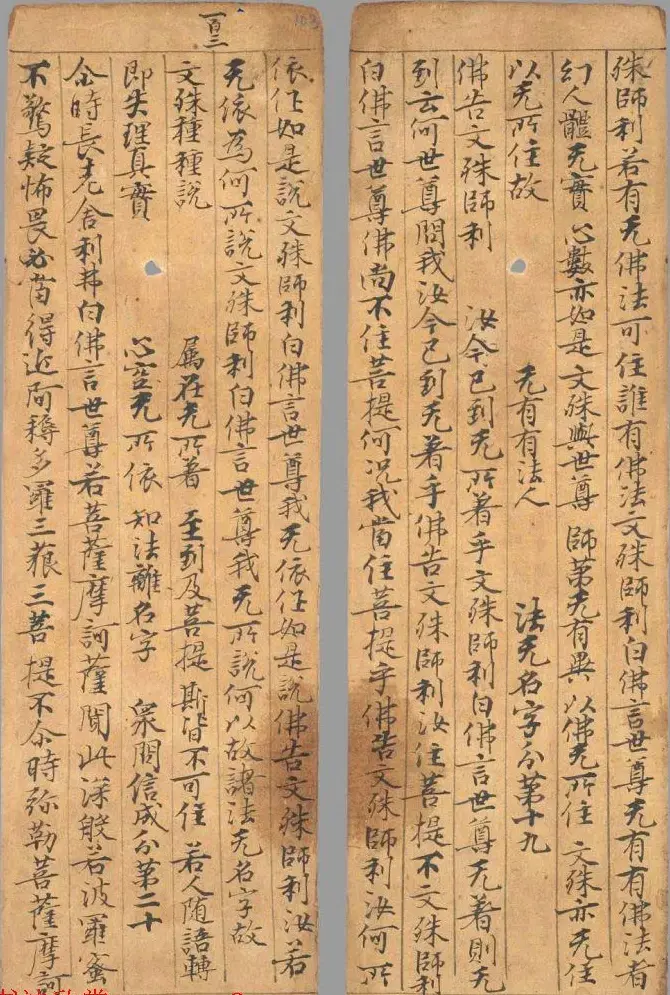 殊師利若有无佛法可住誰有佛法文殊師利白佛言世尊无有有佛法者
幻人體无實 心數亦如是 文殊與世尊 師弟无有異 以佛无所住 文殊亦无住
以无所住故 无有有法人 法无名字分第十九
佛告文殊師利 汝今已到无所著乎文殊師利白佛言世尊无著則无
到云何世尊問我汝今已到无著乎佛告文殊師利汝住菩提不文殊師利
白佛言世尊佛尚不住菩提何況我當住菩提乎佛告文殊師利汝何所
一百三
103
依作如是說文殊師利白佛言世尊我无依作如是說佛告文殊師利汝若
无依為何所說文殊師利白佛言世尊我无所說何以故諸法无名字故
文殊種種說 屬在无所著 至到及菩提 斯皆不可住 若人随語轉
即失理真實 心空无所依 知法離名字 衆問信成分第二十
尒時長老舍利弗白佛言世尊若菩薩摩訶薩聞此深般若波羅蜜
不驚疑怖畏必當得近阿耨多羅三藐三菩提不尒時弥勒菩薩摩訶